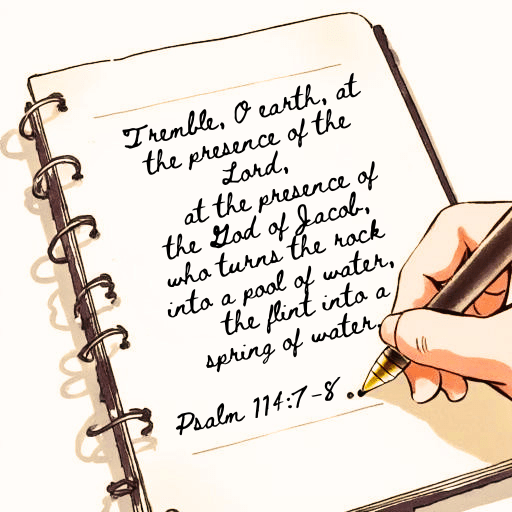 Tremble, O earth, at
the presence of the
Lord,
at the presence of
the God of Jacob,
who turns the rock
into a pool of water,
the flint into a
spring of water.
Psalm 114:7-8